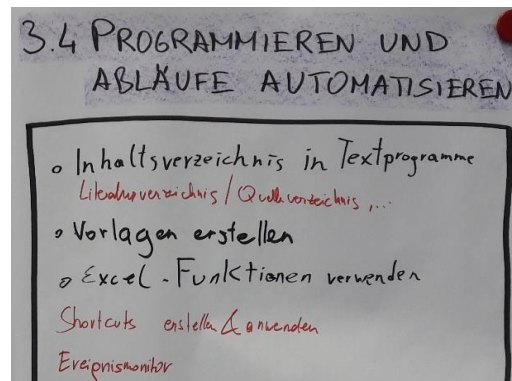 3.4 PROGRAMMIEREN UND
ABLÄUFE AUTOMATISIEREN
• Inhaltsverzeichnis in Textprogramme
Literaturverzeichnis / Quellverzeichnis ,...
• Vorlagen erstellen
• Excel - Funktionen verwenden
Shortcuts erstellen & anwenden
Ereignismonitor